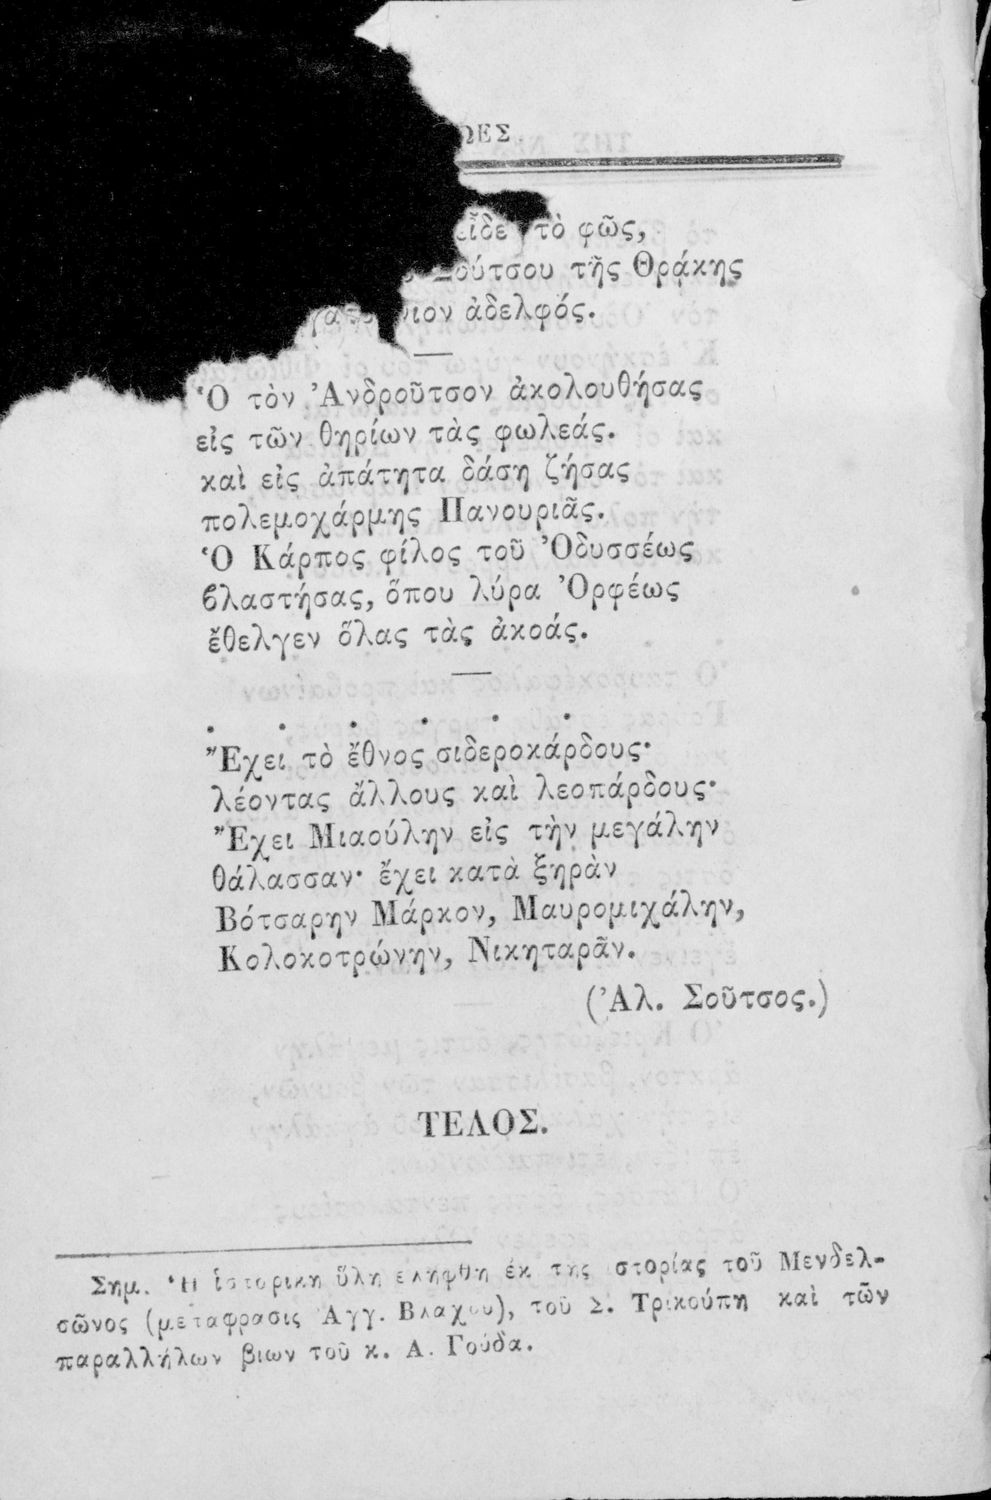 τὸ φῶς,
τῆς Θράκης
ἀδελφός.
Ὁ τὸν Ἀνδροῦτσον ἀκολουθήσας
εἰς τῶν θηρίων τὰς φωλεάς.
καὶ εἰς ἀπάτητα δάση ζήσας
πολεμοχάρμης Πανουριᾶς.
Ὁ Κάρπος φίλος τοῦ Ὀδυσσέως
βλαστήσας, ὅπου λύρα Ὀρφέως
ἔθελγεν ὅλας τὰς ἀκοάς.
. . . . . .
Ἔχει τὸ ἔθνος σιδεροκάρδους·
λέοντας ἄλλους καὶ λεοπάρδους·
Ἔχει Μιαούλην εἰς τὴν μεγάλην
θάλασσαν· ἔχει κατὰ ξηρὰν
Βότσαρην Μάρκον, Μαυρομιχάλην,
Κολοκοτρώνην, Νικηταρᾶν.
(Ἀλ. Σοῦτσος.)
ΤΕΛΟΣ.
Σημ. Ἡ ἱστορικη ὕλη εληφθη ἐκ της ἱστορίας τοῦ Μενδελ-
σῶνος (μεταφρασις Ἀγγ. Βλαχου), τοῦ Σ. Τρικούπη καὶ τῶν
παραλλήλων βιων τοῦ κ. Α. Γούδα.